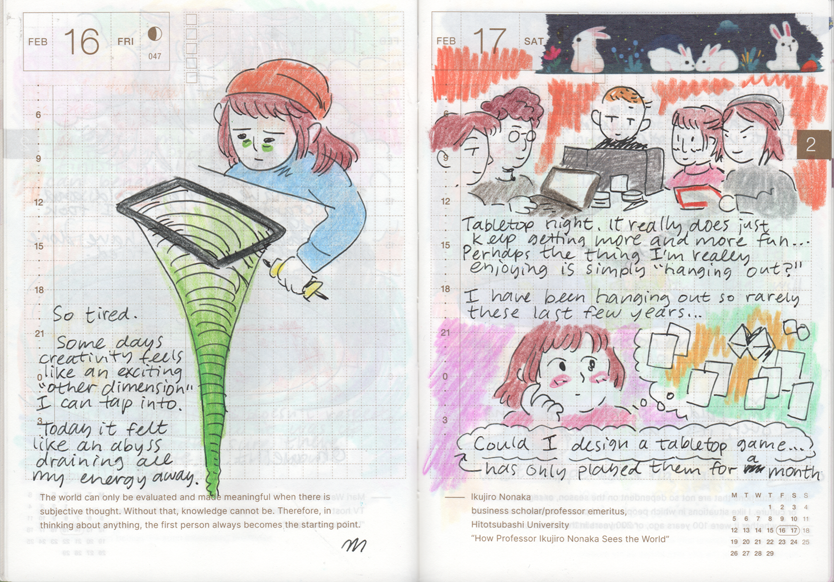 FEB 16 FRI
047
6
9
12
15
18
21
0
3
So tired.
Some days
creativity feels
like an exciting
"other dimension"
I can tap into.
Today it felt
like an abyss
draining all
my energy away.
The world can only be evaluated and made meaningful when there is
subjective thought. Without that, knowledge cannot be. Therefore, in
thinking about anything, the first person always becomes the starting point.
FEB 17 SAT
2
6
9
12
15
18
21
0
3
Tabletop night. It really does just
keep getting more and more fun...
Perhaps the thing I'm really
enjoying is simply "hanging out?"
I have been hanging out so rarely
these last few years...
Could I design a tabletop game...
has only played them for a month
Ikujiro Nonaka
business scholar/professor emeritus,
Hitotsubashi University
"How Professor Ikujiro Nonaka Sees the World"
M T W T F S S
1 2 3 4
5 6 7 8 9 10 11
12 13 14 15 16 17 18
19 20 21 22 23 24 25
26 27 28 29